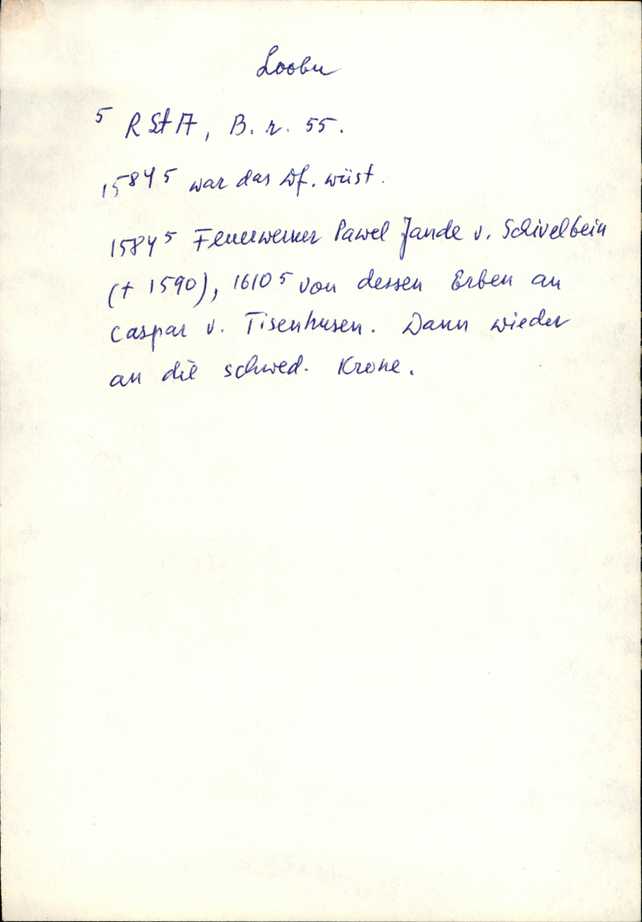 Loobu
⁵ R St A, B. r. 55.
1584⁵ war das Df. wüst.
1584⁵ Feuerwerker Pawel Jande v. Schivelbein
(† 1590), 1610⁵ von dessen Erben an
Caspar v. Tisenhusen. Dann wieder
an die schwed. Krone.